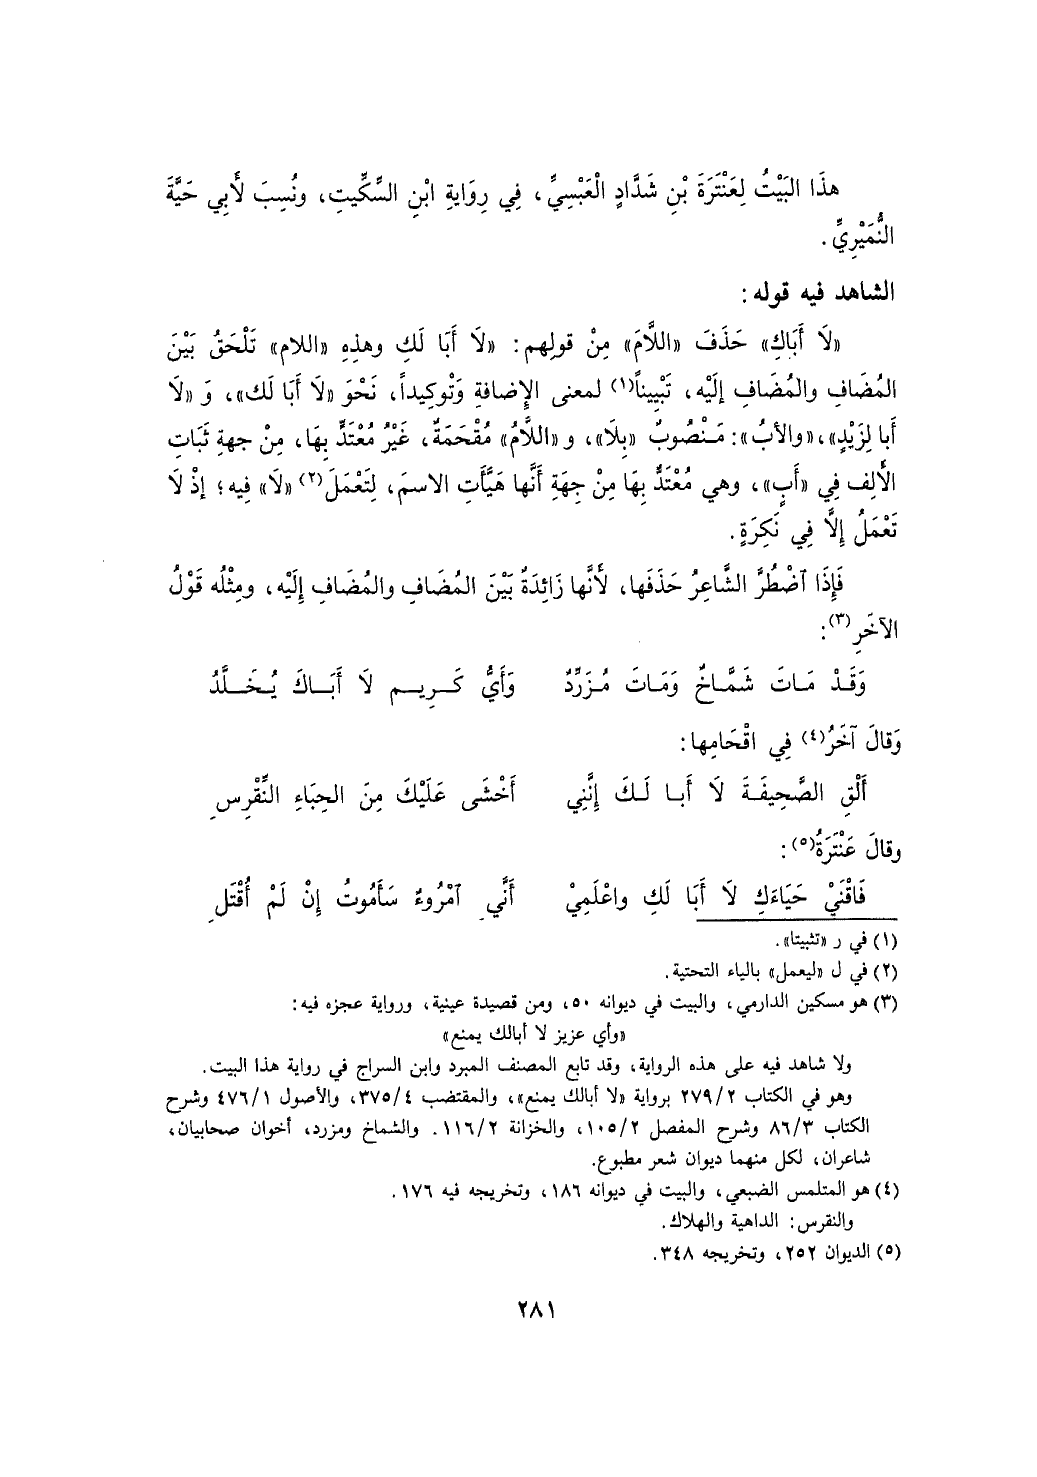 هذَا البَيْتُ لِعَنْتَرَةَ بْنِ شَدَّادٍ الْعَبْسِيِّ، فِي رِوَايَةِ ابْنِ السِّكِّيتِ، ونُسِبَ لأَبِي حَيَّةَ
النُّمَيْرِيِّ.
الشاهد فيه قوله:
«لَا أَبَاكِ» حَذَفَ «اللَّامَ» مِنْ قولِهم: «لَا أَبَا لَكِ وهذِهِ «اللام» تَلْحَقُ بَيْنَ
المُضَافِ والمُضَافِ إلَيْه، تَبْييناً(١) لمعنى الإضافةِ وَتْوكيداً، نَحْوَ «لَا أَبَا لَك»، وَ «لَا
أَبا لِزَيْدٍ»، «والأبُ»: مَنْصُوبٌ «بِلَا»، و «اللَّامُ» مُقْحَمَةٌ، غَيْرُ مُعْتَدٍّ بِهَا، مِنْ جهةِ ثَبَاتِ
الأَلِف فِي «أَبٍ»، وهي مُعْتَدٌّ بِهَا مِنْ جِهَةِ أَنَّها هَيَّأَتِ الاسمَ، لِتَعْمَلَ(٢) «لَا» فيه؛ إذْ لَا
تَعْمَلُ إلاَّ فِي نَكِرَةٍ.
فَإِذَا ٱضْطُرَّ الشَّاعِرُ حَذَفَها، لأَنَّها زَائِدَةٌ بَيْنَ المُضَافِ والمُضَافِ إلَيْه، ومِثْلُه قَوْلُ
الآخَرِ(٣):
وَقَدْ مَاتَ شَمَّاخٌ وَمَاتَ مُزَرِّدٌ وَأَيُّ كَرِيمٍ لَا أَبَاكَ يُخَلَّدُ
وَقالَ آخَرُ(٤) فِي اقْحَامِها:
أَلْقِ الصَّحِيفَةَ لَا أَبا لَكَ إنَّنِي أَخْشَى عَلَيْكَ مِنَ الحِبَاءِ النِّقْرِسِ
وقالَ عَنْتَرَةُ(٥):
فَاقْنَيْ حَيَاءَكِ لَا أَبَا لَكِ واعْلَمِيْ أَنَّي ٱمْرُوءٌ سَأَمُوتُ إنْ لَمْ أُقْتَلِ
(١) في ر «تثبيتا».
(٢) في ل «ليعمل» بالياء التحتية.
(٣) هو مسكين الدارمي، والبيت في ديوانه ٥٠، ومن قصيدة عينية، ورواية عجزه فيه:
«وأي عزيز لا أبالك يمنع»
ولا شاهد فيه على هذه الرواية، وقد تابع المصنف المبرد وابن السراج في رواية هذا البيت.
وهو في الكتاب ٢٧٩/٢ برواية «لا أبالك يمنع»، والمقتضب ٣٧٥/٤، والأصول ٤٧٦/١ وشرح
الكتاب ٨٦/٣ وشرح المفصل ١٠٥/٢، والخزانة ١١٦/٢. والشماخ ومزرد، أخوان صحابيان،
شاعران، لكل منهما ديوان شعر مطبوع.
(٤) هو المتلمس الضبعي، والبيت في ديوانه ١٨٦، وتخريجه فيه ١٧٦.
والنقرس: الداهية والهلاك.
(٥) الديوان ٢٥٢، وتخريجه ٣٤٨.
٢٨١